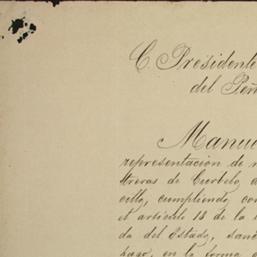 C. Presidente
del Peñ
Manue
representación de m
treras de Curbelo, d
cillo, cumpliendo con
el artículo 18 de la l
da del Estado, sanc
pago, en la forma q